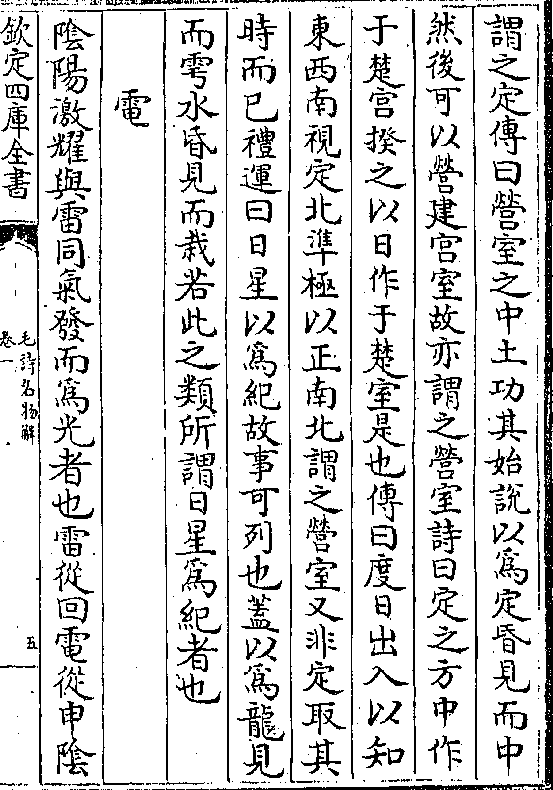 謂之定傳曰營室之中土功其始說以為定昏見而中
然後可以營建宫室故亦謂之營室詩曰定之方中作
于楚宫揆之以日作于楚室是也傳曰度日出入以知
東西南視定北準極以正南北謂之營室又非定取其
時而已禮運曰日星以為紀故事可列也蓋以為龍見
而雩水昏見而栽若此之類所謂日星為紀者也
電
陰陽激耀與雷同氣發而為光者也雷從回電從申陰
欽定四庫全書
毛詩名物解
卷一
五